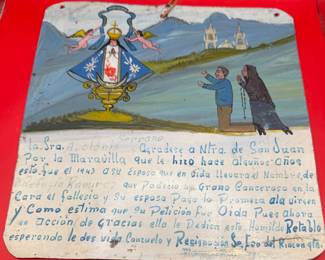 Soprano
La Sra. Antonia Agradece a Ntra. de San Juan
Por la Maravilla que le hizo hace Algunos Años
esto fue el 1943 a Su Esposo que en Vida llevara el Nombre, de
Ramirez que Padecio un Grano Canceroso en la
Cara el fallecio y Su esposa Paga la Promesa a la virgen
y Como estima que Su Petición fue Oida Pues Ahora
en Acción, de Gracias ella le Dedica este Humilde Retablo
esperando le des vida Consuelo y Resignación Sn. Fco del Rincon gto.